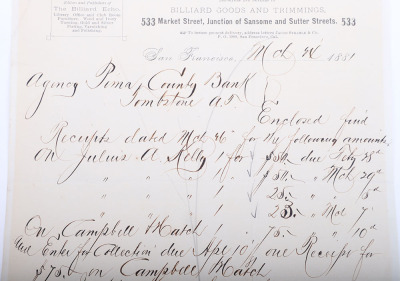 The Billiard Echo.
BILLIARD GOODS AND TRIMMINGS,
533 Market Street, Junction of Sansome and Sutter Streets. 533
San Francisco, Mch 24 1881
Agency Pima County Bank
Tombstone A.T.
Enclosed find
Receipts dated Mch 26" for the following amounts
On Julius A. Kelly 1 for $50. due Feby 28th
" " " 1 " $50. " Mch 29th
" " " 1 " 25. "
" " " 1 " 25. " Mch 7
On Campbell & Hatch 1 " 75. " " 10th
And Enter for Collection due Apr 10th one Receipt for
$75.00 on Campbell & Hatch